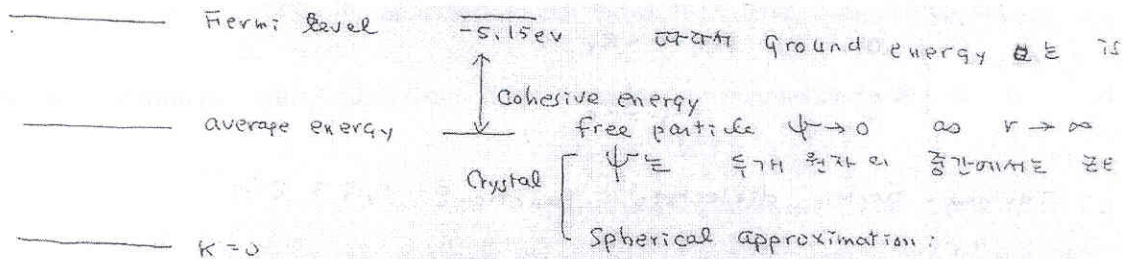 Fermi level -5.15eV 따라서 Ground energy 또는 is
Cohesive energy
average energy free particle ψ→0 as r→∞
Crystal ψ는 두개 원자의 중간에서는
K=0 Spherical approximation: